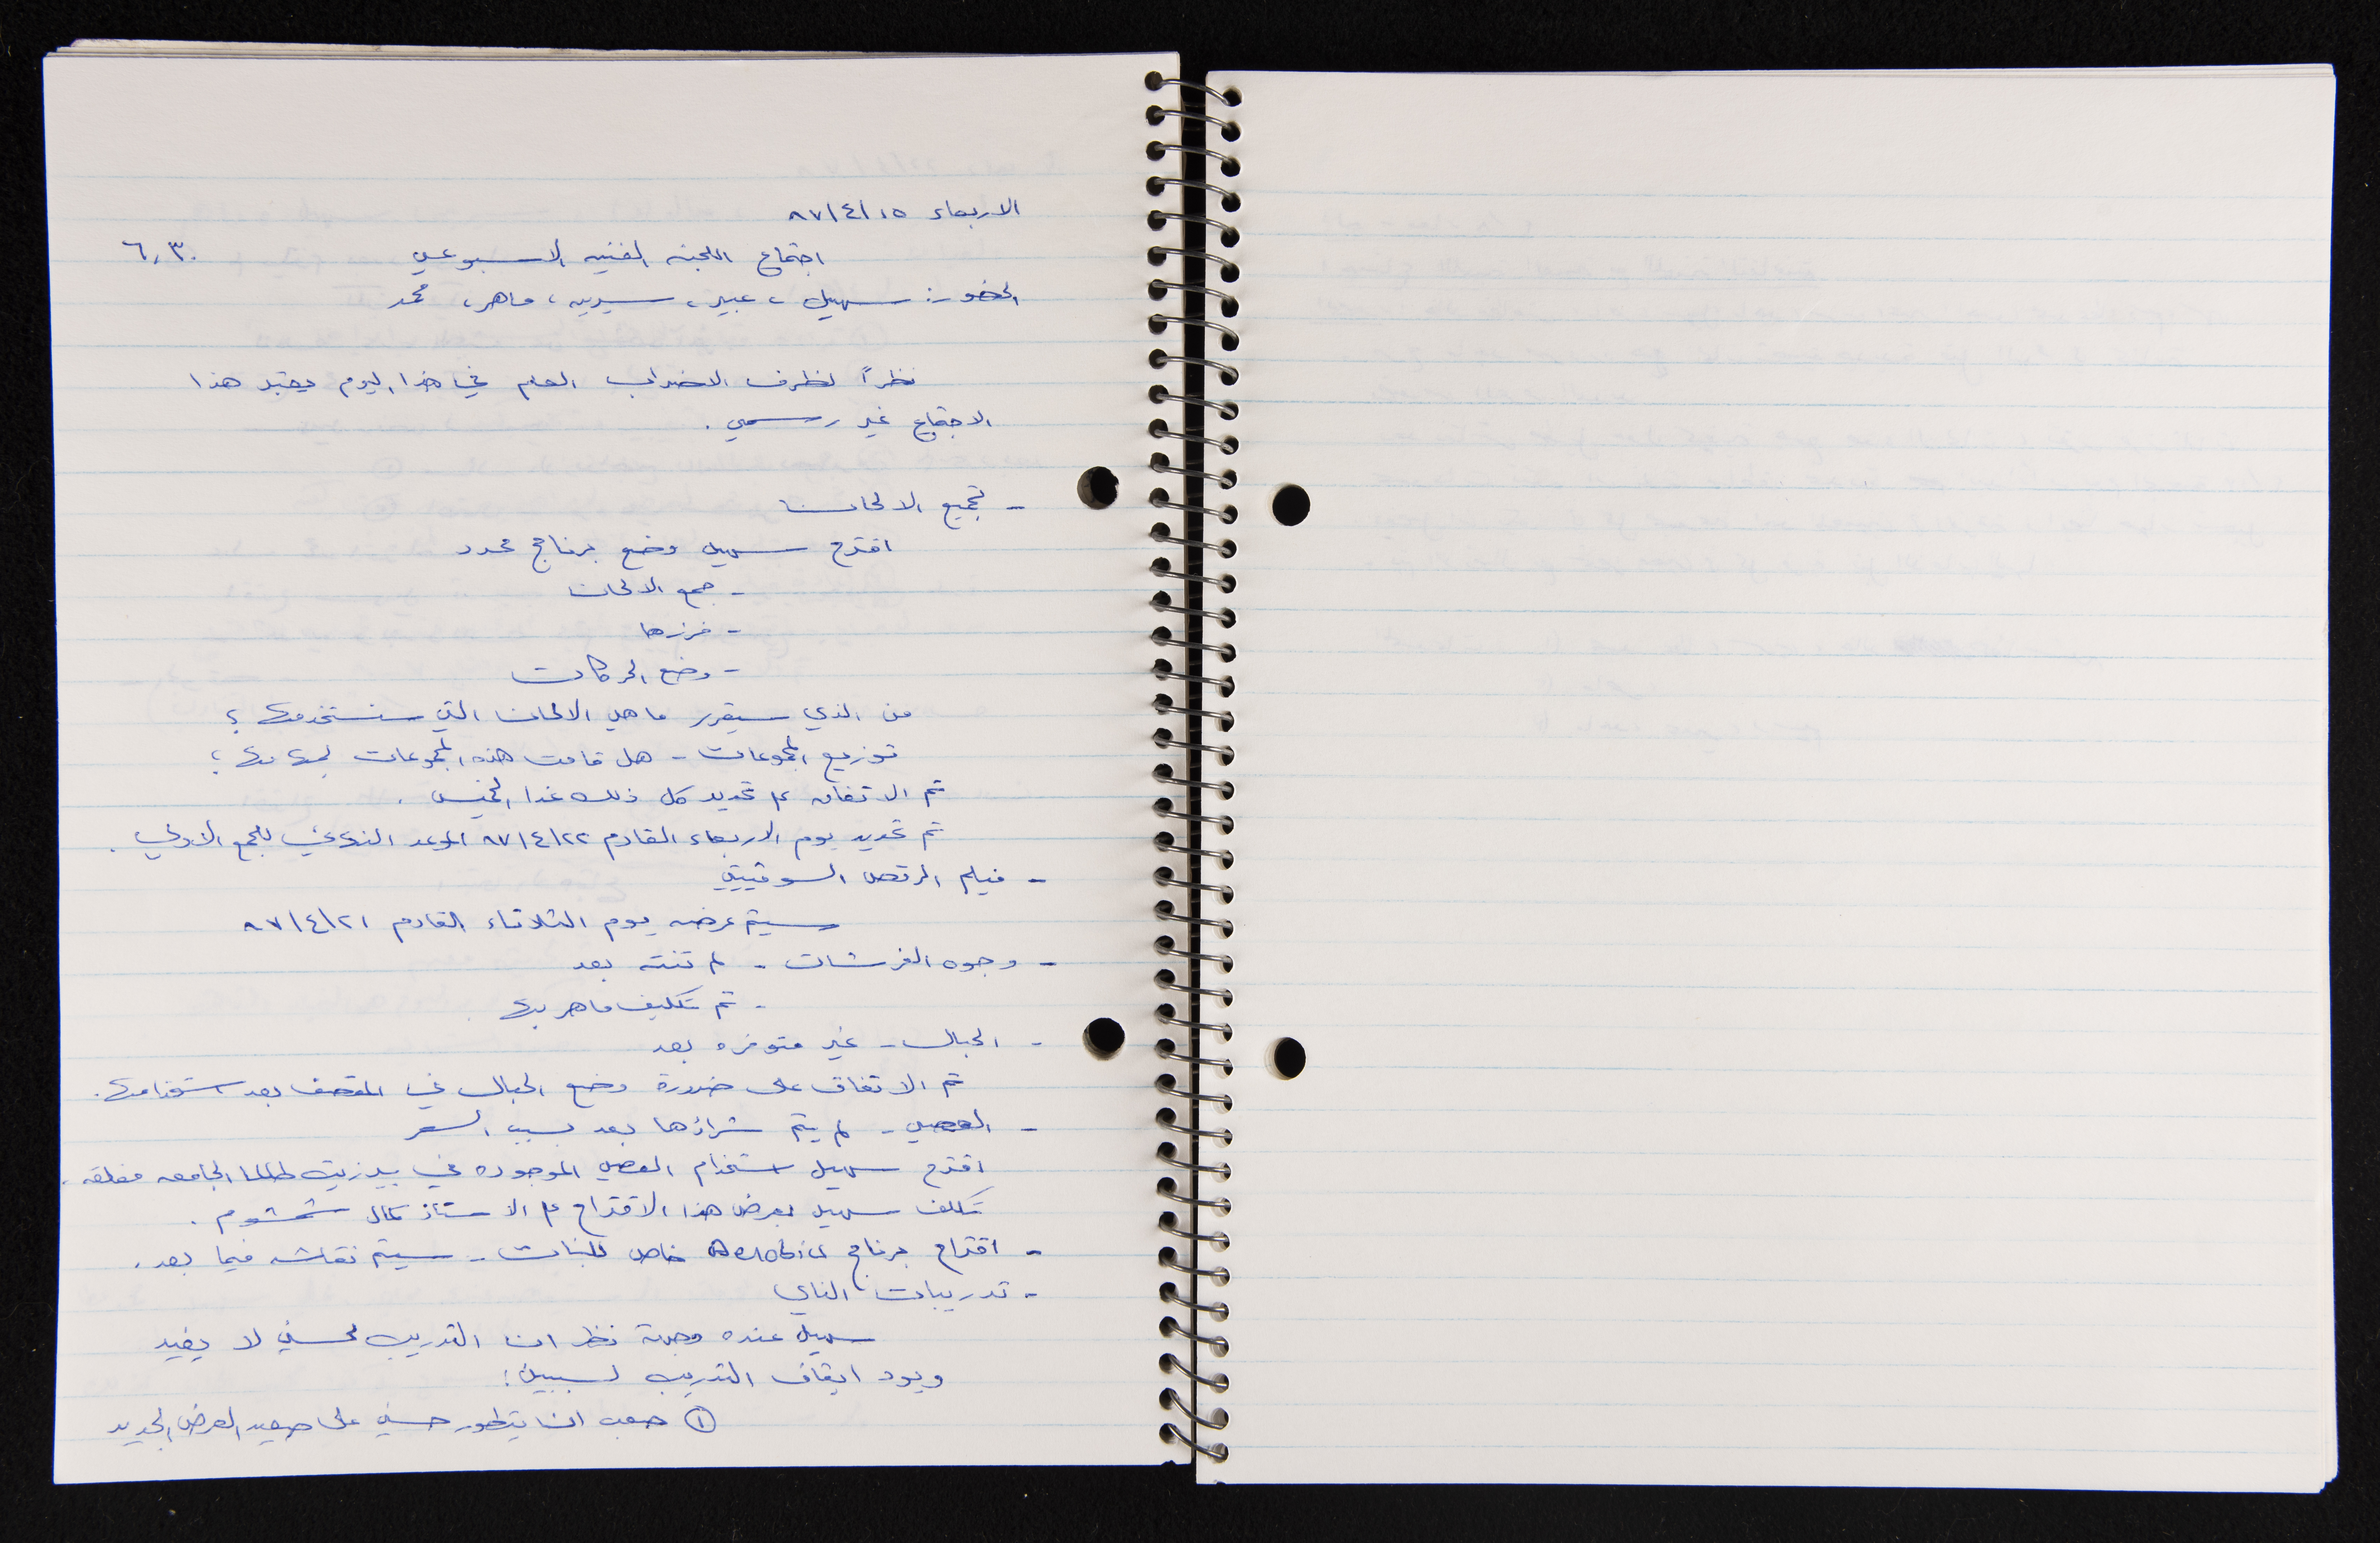 الاربعاء ٨٧/٤/١٥
اجتماع اللجنه الفنيه الاسبوعي ٦,٣٠
الحضور: سهيل، عبير، سيرين، ماهر، محمد
نظراً لظرف الاضراب العام في هذا اليوم يعتبر هذا
الاجتماع غير رسمي.
- تجميع الالحان
اقترح سهيل وضع برنامج محدد
- جمع الالحان
- فرزها
- وضع الحركات
من الذي سيقرر ما هي الالحان التي سنستخدمها؟
توزيع المجموعات - هل قامت هذه المجموعات بمهامها؟
تم الاتفاق على تحديد كل ذلك غدا الخميس.
تم تحديد يوم الاربعاء القادم ٨٧/٤/٢٢ الموعد النهائي للجمع الاولي.
- فيلم الرقص السوفييتي
سيتم عرضه يوم الثلاثاء القادم ٨٧/٤/٢١
- وجوه الفرشات - لم تنته بعد
- تم تكليف ماهر بها
- الحبال - غير متوفره بعد
تم الاتفاق على ضرورة وضع الحبال في المقصف بعد استخدامها.
- العصي - لم يتم شراؤها بعد بسبب السعر
اقترح سهيل استخدام العصي الموجوده في بيرزيت طالما الجامعه مغلقه.
تكلف سهيل بعرض هذا الاقتراح على الاستاذ كمال شمشوم.
- اقتراح برنامج Aerobics خاص للبنات - سيتم نقاشه فيما بعد.
- تدريبات الناي
سهيل عنده وجهة نظر ان التدريب لحسني لا يفيد
ويود ايقاف التدريب لسببين:
① صعب ان يتطور حسني على صعيد العرض الجديد